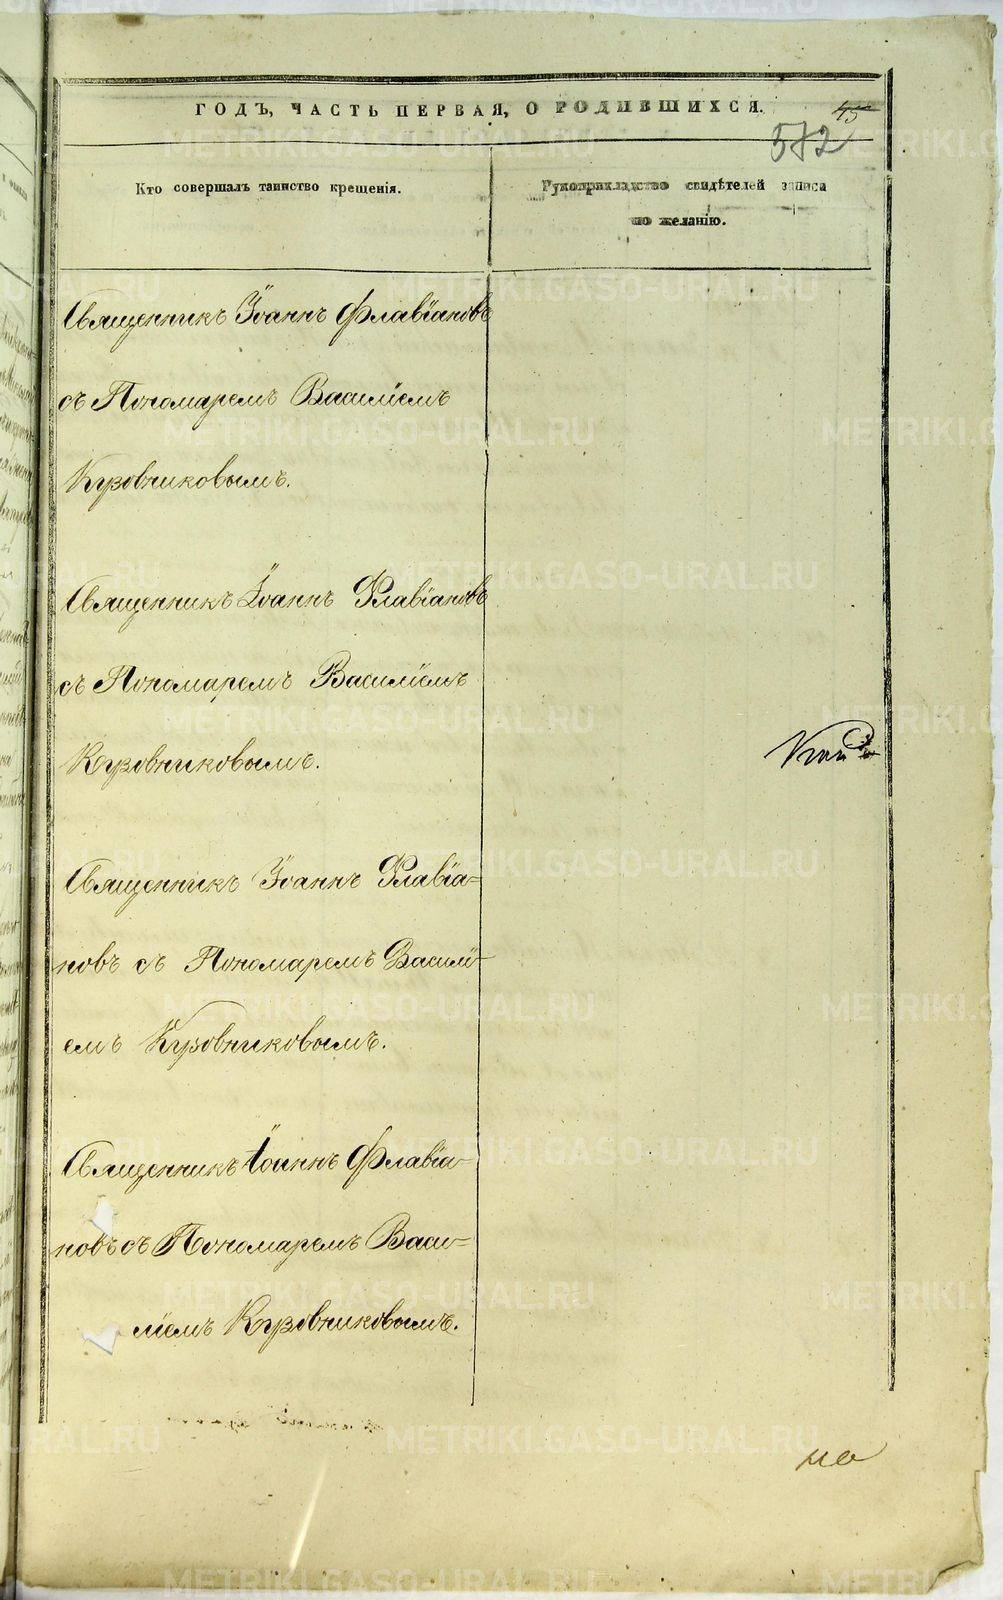 ГОДЪ, ЧАСТЬ ПЕРВАЯ, О РОДИВШИХСЯ. 45
572
Кто совершалъ таинство крещенія.
Рукоприкладство свидѣтелей записи
по желанію.
Священникъ Іоаннъ Флавіановъ
съ Пономаремъ Василіемъ
Кузовниковымъ.
Священникъ Іоаннъ Флавіановъ
съ Пономаремъ Василіемъ
Кузовниковымъ.
Священникъ Іоаннъ Флавіа=
новъ съ Пономаремъ Василі=
емъ Кузовниковымъ.
Священникъ Іоаннъ Флавіа=
новъ съ Пономаремъ Васи=
ліемъ Кузовниковымъ.
METRIKI.GASO-URAL.RU